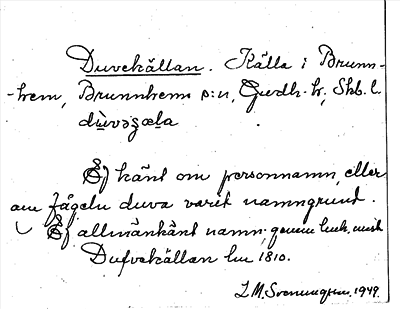 Duvekällan. Källa i Brunn-
-hem, Brunnhems s:n, Gudh. hr, Skb. l.
duvəʂæla
Ej känt om personnamn, eller
om fågeln duva varit namngrund.
Ej allmänkänt namn.
Dufvekällan lm 1810.
L M. Svenungsson. 1949.